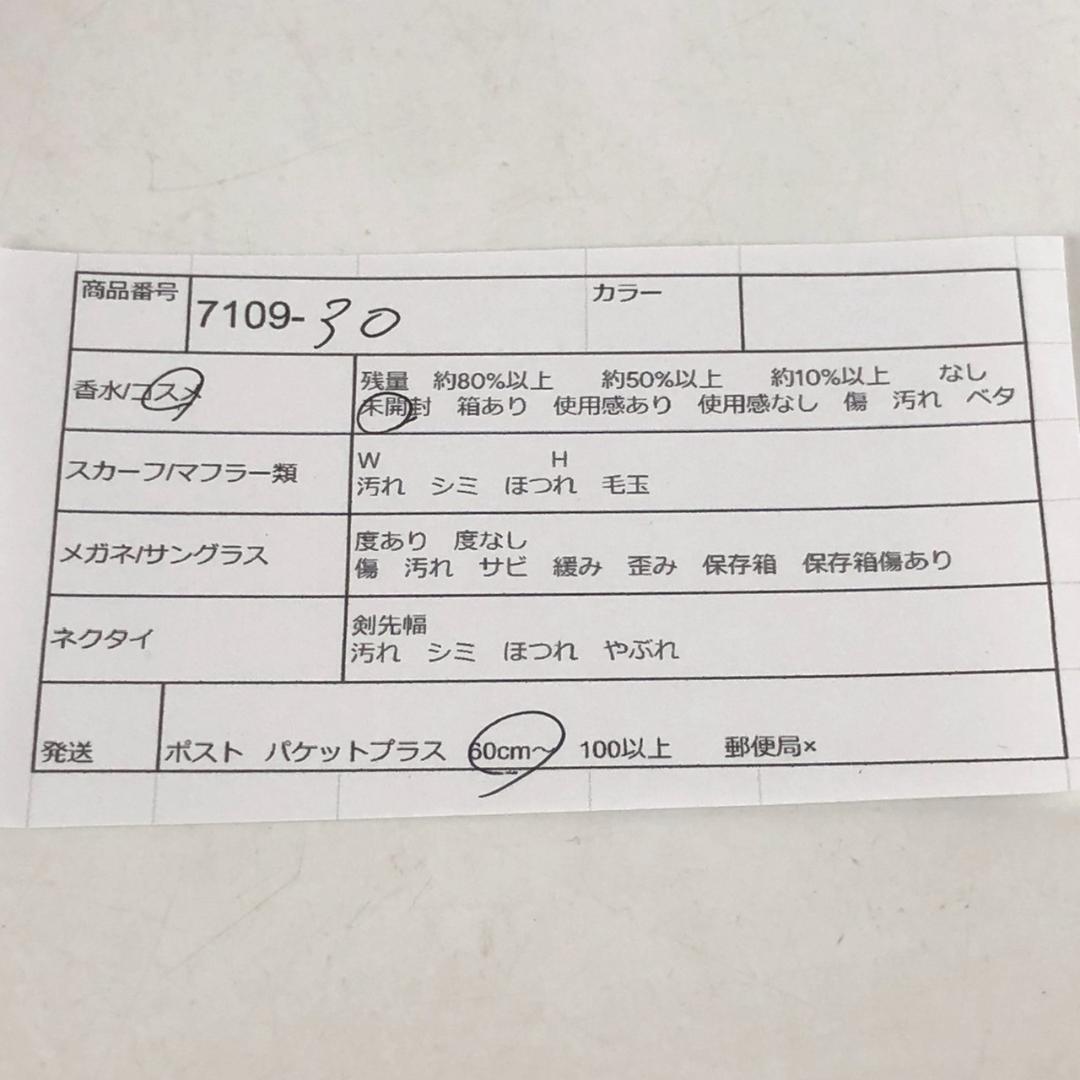 商品番号 7109-30 カラー
香水/コスメ
残量 約80%以上 約50%以上 約10%以上 なし
未開封 箱あり 使用感あり 使用感なし 傷 汚れ ベタ
スカーフ/マフラー類
W H
汚れ シミ ほつれ 毛玉
メガネ/サングラス
度あり 度なし
傷 汚れ サビ 緩み 歪み 保存箱 保存箱傷あり
ネクタイ
剣先幅
汚れ シミ ほつれ やぶれ
発送 ポスト パケットプラス 60cm〜 100以上 郵便局×